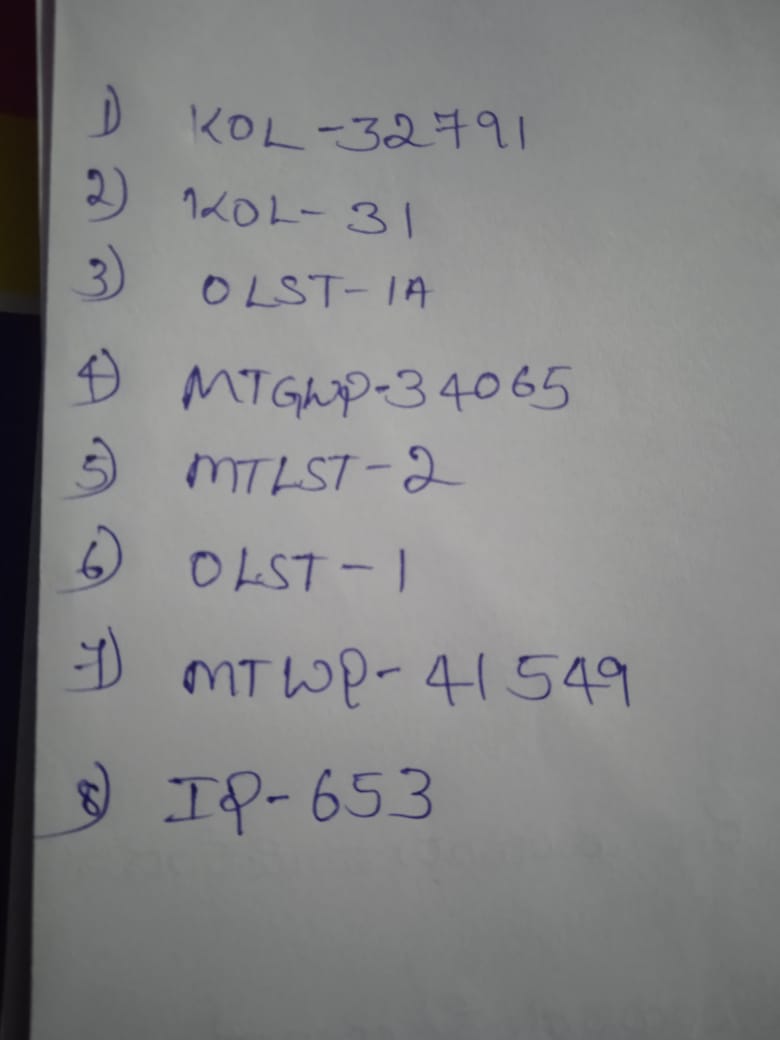 1) KOL-32791
2) KOL-31
3) OLST-1A
4) MTGWP-34065
5) MTLST-2
6) OLST-1
7) MTWP-41549
8) IP-653